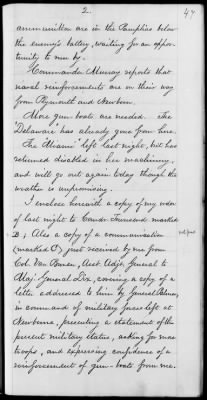 2.
47
ammunition are in the Pamphlico below
the enemy's battery, waiting for an oppor-
tunity to run by.
Commander Murray reports that
naval reinforcements are on their way
from Plymouth and Newbern.
More gun-boats are needed. The
"Delaware" has already gone from here.
The "Miami" left last night, but has
returned disabled in her machinery,
and will go out again today though the
weather is unpromising.
I enclose herewith a copy of my order
of last night to Comdr Townsend marked
B; Also a copy of a communication
(marked C) just received by me from
Col. Van Buren, Asst Adjt. General to
Maj. General Dix, covering a copy of a
letter addressed to him by General Palmer,
in command of military forces left at
Newberne, presenting a statement of the
present military status, asking for more
troops, and expressing confidence of a
reinforcement of gun-boats from me.